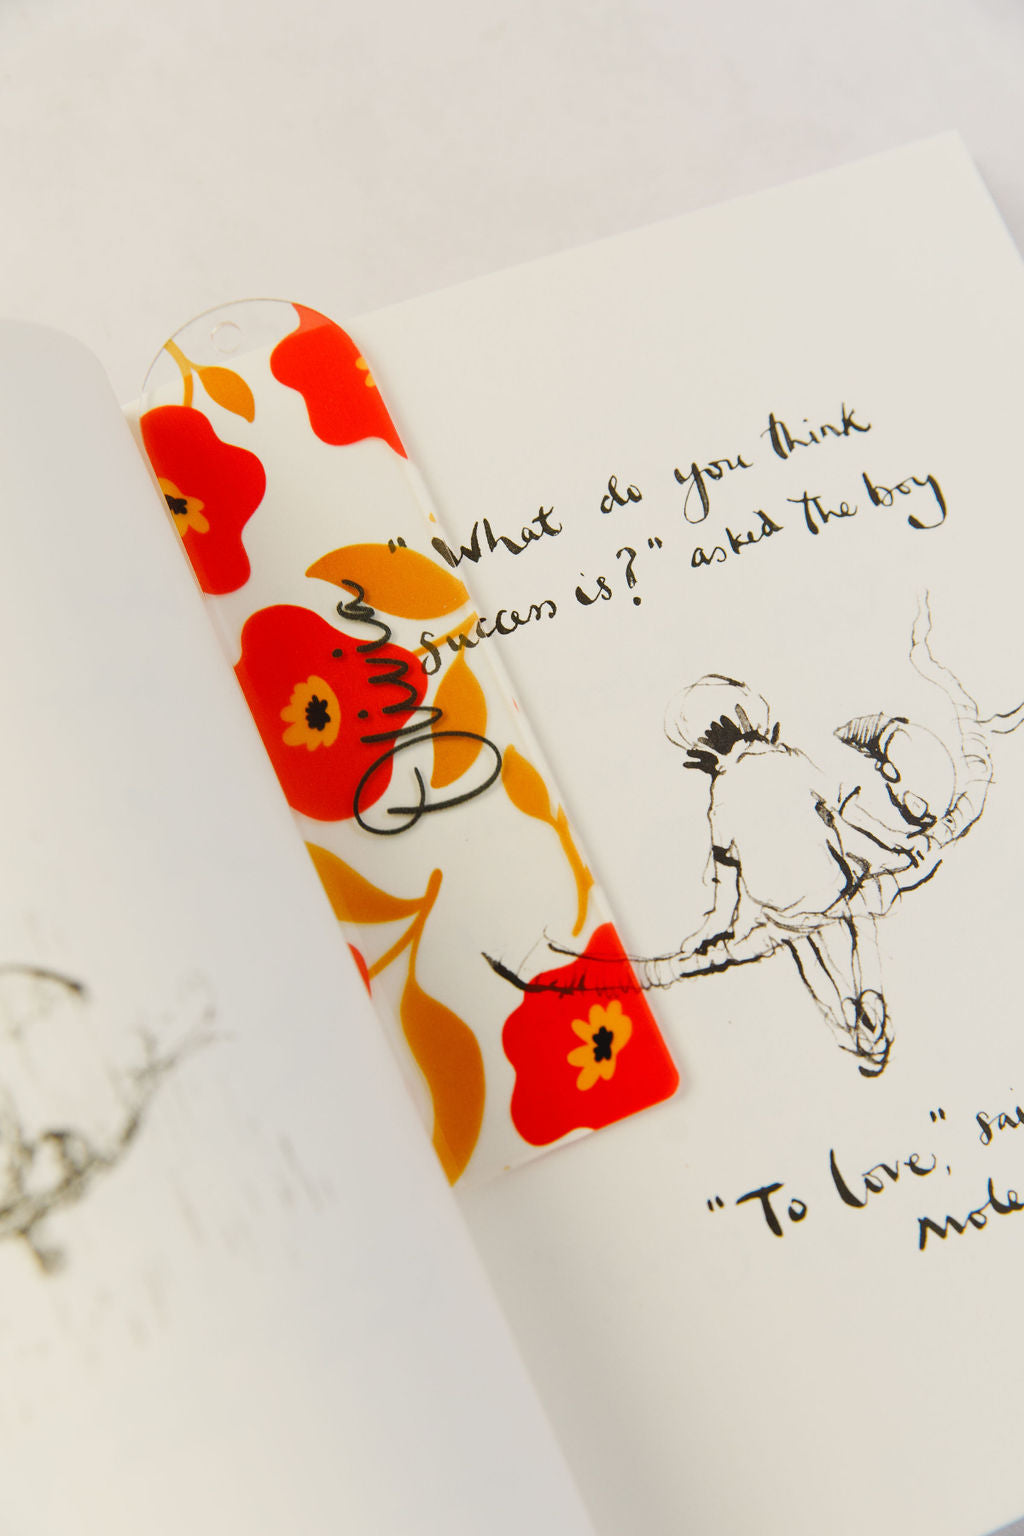 "What do you think
success is?" asked the boy
Olivia
"To love," sai
mole